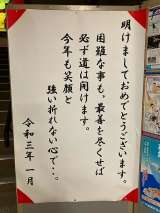 明けまして、おめでとうございます。
困難な事も、最善を尽くせば
必ず道は開けます。
今年も笑顔と
強い折れない心で・・。
令和三年 一月